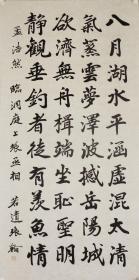 八月湖水平涵虛混太清
氣蒸雲夢澤波撼岳陽城
欲濟無舟楫端坐恥聖明
静觀垂釣者徒有羨魚情
孟浩然 臨洞庭上張丞相 若道張